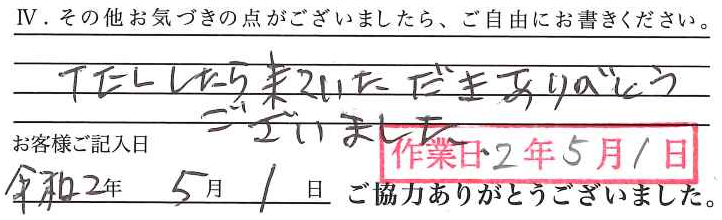 Ⅳ．その他お気づきの点がございましたら、ご自由にお書きください。
したら来ていただきありがとう
ございました
お客様ご記入日
作業日.2年5月1日
令和2年 5月 1日 ご協力ありがとうございました。